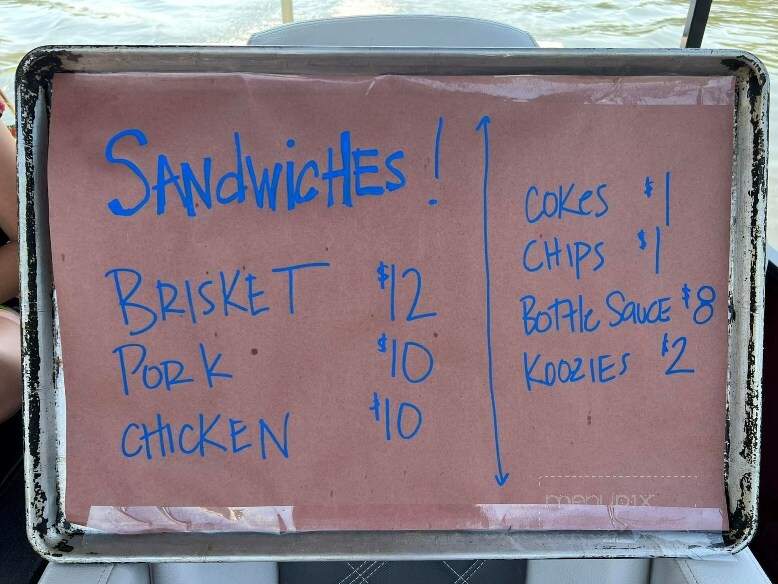 SANdWiCHES!
BRISKET $12
PORK $10
CHICKEN $10
COKES $1
CHIPS $1
BOTTlE SAUCE $8
KOOZIES $2
menupix